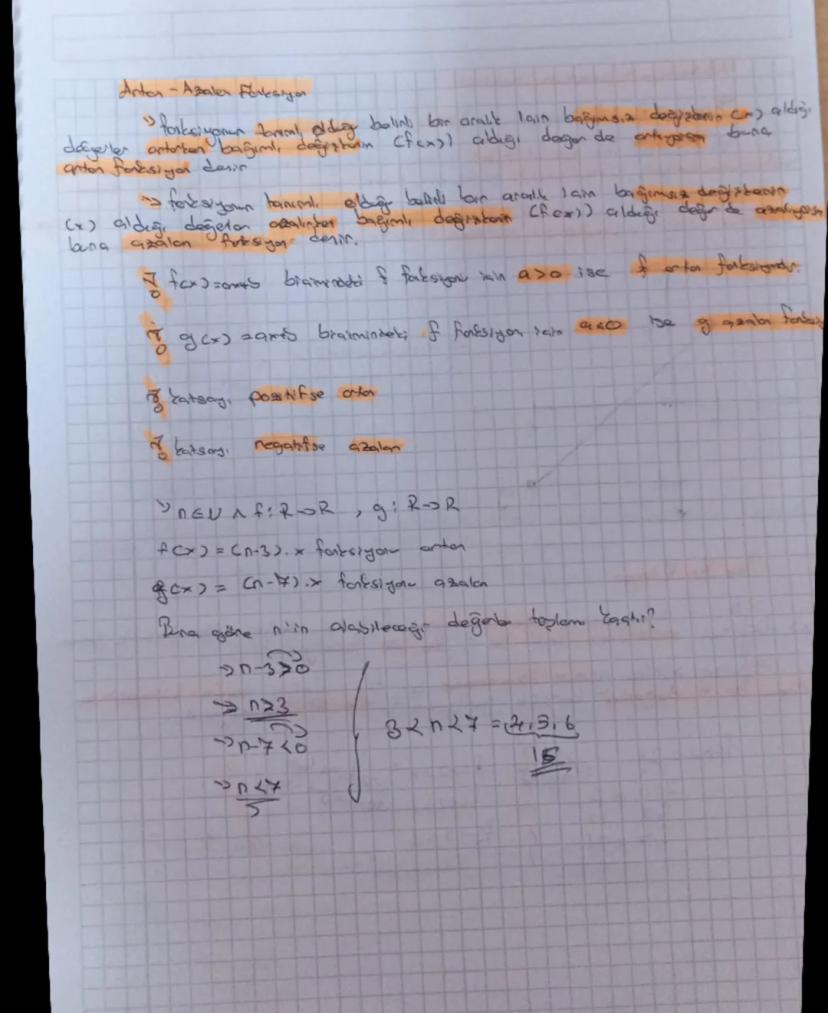 Artan - Azalan Fonksiyon
→ fonksiyonun tanımlı olduğu belirli bir aralık için bağımsız değişkenin (x) aldığı
değerler artarken bağımlı değişkenin (f(x)) aldığı değer de artıyorsa buna
artan fonksiyon denir
→ fonksiyonun tanımlı olduğu belirli bir aralık için bağımsız değişkenin
(x) aldığı değerler azalırken bağımlı değişkenin (f(x)) aldığı değer de azalıyorsa
buna azalan fonksiyon denir.
f(x)=ax+b biçimindeki f fonksiyonu için a>0 ise f artan fonksiyondur.
g(x)=ax+b biçimindeki f fonksiyon için a<0 ise g azalan
katsayı pozitifse artan
katsayı negatifse azalan
→ n∈N ∧ f: R→R , g: R→R
f(x) = (n-3).x fonksiyonu artan
g(x) = (n-7).x fonksiyonu azalan
Buna göre n'in alabileceği değerler toplamı kaçtır?
→ n-3>0
→ n>3
→ n-7<0
→ n<7
3<n<7 = 4,5,6
15